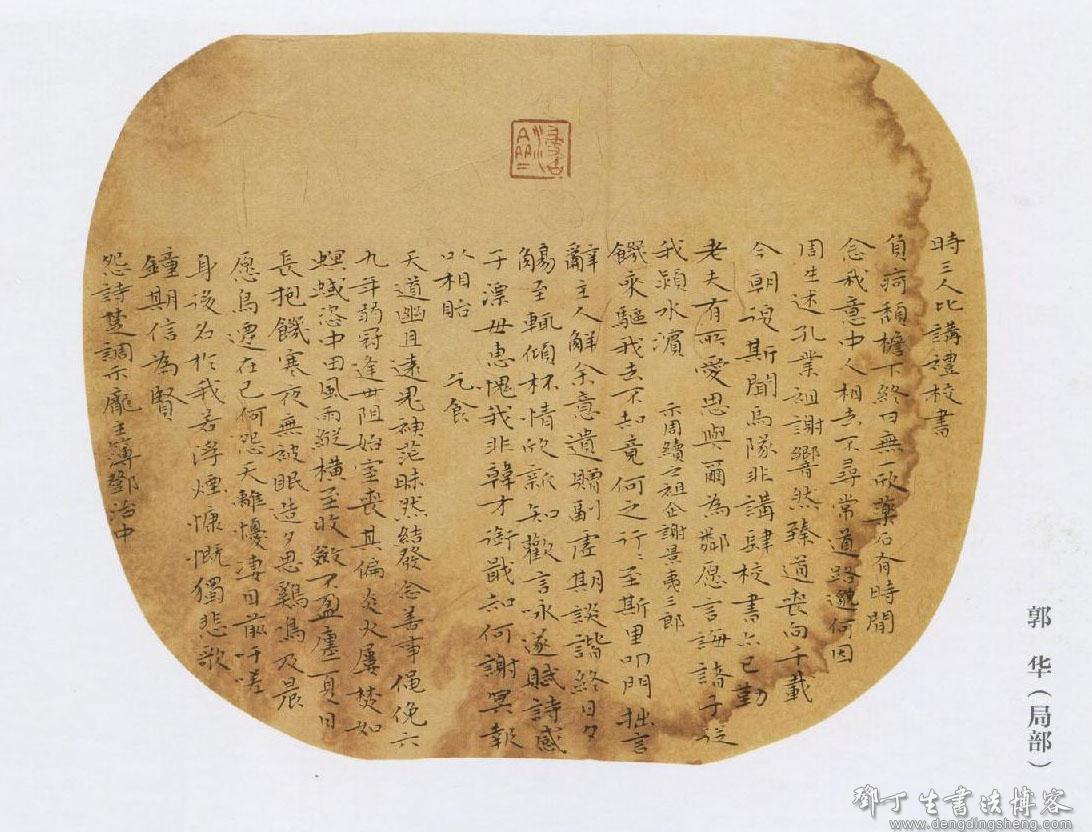 時三人比講禮校書
負痾頹檐下終日無一欣藥石有時閒
念我意中人相去不尋常道路邈何因
周生述孔業祖謝響然臻道喪向千載
今朝復斯聞馬隊非講肆校書亦已勤
老夫有所愛思與爾為鄰愿言誨諸子從
我潁水濱 示周續之祖企謝景夷三郎
饑來驅我去不知竟何之行〻至斯里叩門拙言
辭主人解余意遺贈副虛期談諧終日夕
觴至輒傾杯情欣新知歡言詠遂賦詩感
子漂母惠愧我非韓才銜戢知何謝冥報
以相貽 乞食
天道幽且遠鬼神茫昧然結發念善事僶俛六
九年弱冠逢世阻始室喪其偏炎火屢焚如
螟蜮恣中田風雨縱橫至收斂不盈廛夏日
長抱饑寒夜無被眠造夕思雞鳴及晨
愿烏遷在己何怨天離憂凄目前吁嗟
身後名於我若浮煙慷慨獨悲歌
鐘期信為賢
怨詩楚調示龐主簿鄧治中
郭 华（局部）
鄧丁生書法博客
www.dengdingsheng.com